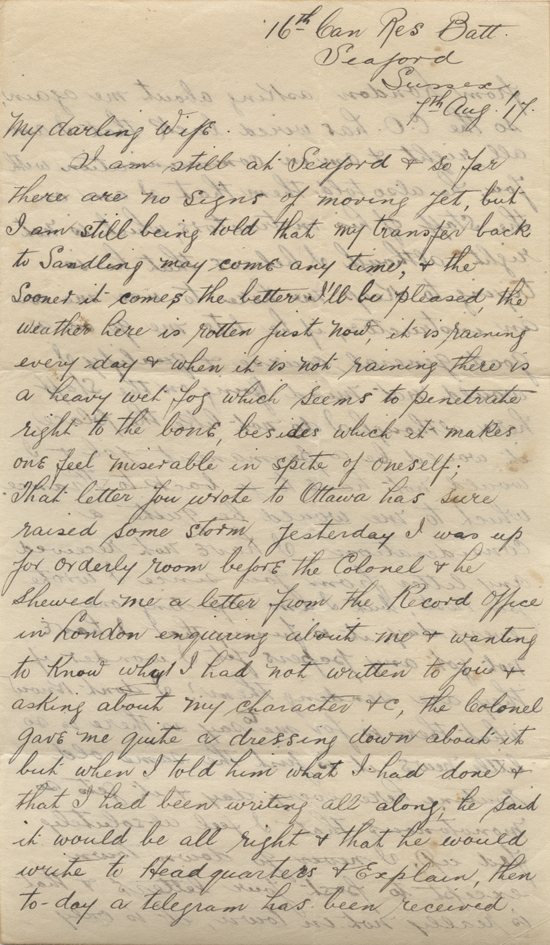 16th Can Res Batt.
Seaford
Sussex
7th Aug. '17.
My darling Wife.
I am still at Seaford & so far
there are no signs of moving yet, but
I am still being told that my transfer back
to Sandling may come any time, & the
Sooner it comes the better I'll be pleased, the
weather here is rotten just now it is raining
every day & when it is not raining there is
a heavy wet fog which seems to penetrate
right to the bone, besides which it makes
one feel miserable in spite of oneself;
That letter you wrote to Ottawa has sure
raised some storm, yesterday I was up
for orderly room before the Colonel & he
shewed me a letter from the Record Office
in London enquiring about me & wanting
to know why I had not written to you &
asking about my character &c, the Colonel
gave me quite a dressing down about it
but when I told him what I had done &
that I had been writing all along, he said
it would be all right & that he would
write to Headquarters & Explain, then
to-day a telegram has been received